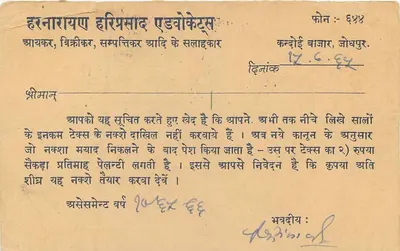 हरनारायण हरिप्रसाद एडवोकेट्स
फोन:- ६४४
आयकर, बिक्रीकर, सम्पत्तिकर आदि के सलाहकार
कन्दोई बाजार, जोधपुर.
दिनांक
श्रीमान्
आपको यह सूचित करते हुए खेद है कि आपने अभी तक नीचे लिखे सालों
के इनकम टेक्स के नक्शे दाखिल नहीं करवाये हैं । अब नये कानून के अनुसार
जो नक्शा मयाद निकलने के बाद पेश किया जाता है - उस पर टेक्स का २) रुपया
सैकड़ा प्रतिमाह पेलन्टी लगती है । इससे आपसे निवेदन है कि कृपया अति
शीघ्र यह नक्शे तैयार करवा देवें ।
असेसमेन्ट वर्ष
भवदीय :